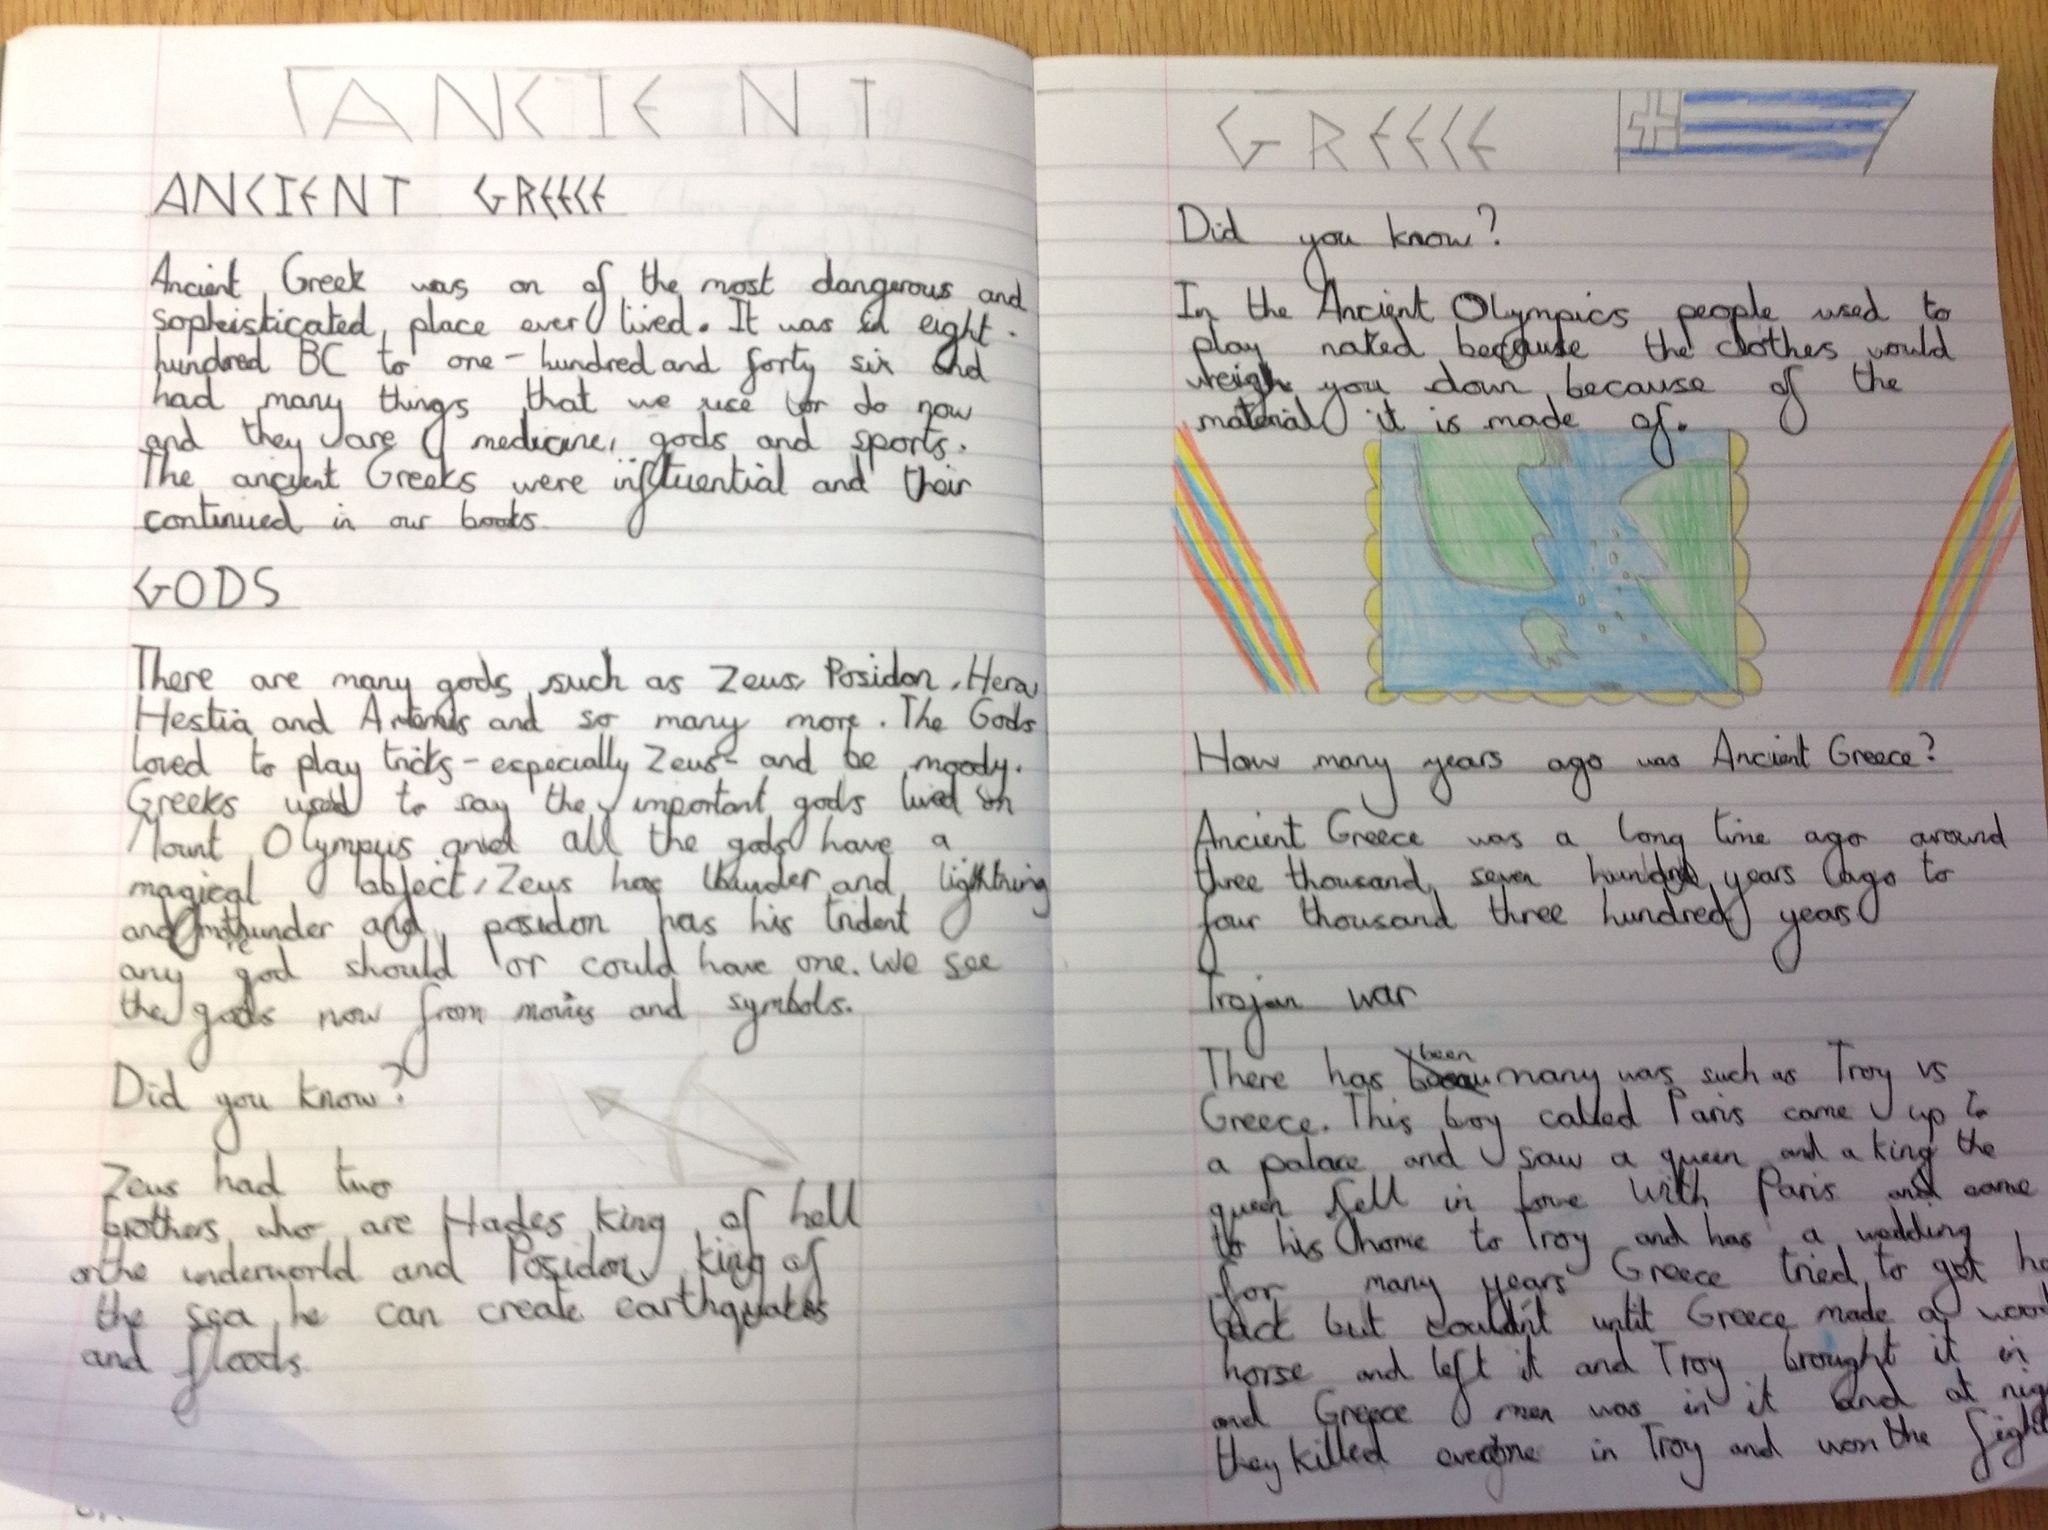 ANCIENT
ANCIENT GREECE
Ancient Greek was on of the most dangerous and
sophisticated, place ever lived. It was in eight-
hundred BC to one-hundred and forty six and
had many things that we use or do now
and they are medicine, gods and sports.
The ancient Greeks were influential and their
continued in our books.
GODS
There are many gods such as Zeus, Posidon, Hera,
Hestia and Artemis and so many more. The Gods
loved to play tricks - especially Zeus - and be moody.
Greeks used to say the important gods lived on
Mount Olympus and all the gods have a
magical object, Zeus has thunder and lightning
and thunder and posidon has his trident
any god should or could have one. We see
the gods now from movies and symbols.
Did you know?
Zeus had two
brothers who are Hades king of hell
or the underworld and Posidon king of
the sea he can create earthquakes
and floods.
GREECE
Did you know?
In the Ancient Olympics people used to
play naked because the clothes would
weigh you down because of the
material it is made of.
How many years ago was Ancient Greece?
Ancient Greece was a long time ago around
three thousand, seven hundred years ago to
four thousand three hundred years
Trojan war
There has been many was such as Troy vs
Greece. This boy called Paris came up to
a palace and saw a queen and a king the
queen fell in love with Paris and came
to his home to Troy and has a wedding
for many years Greece tried to get
back but couldn't until Greece made a
horse and left it and Troy brought it in
and Greece men was in it and at
they killed everyone in Troy and won the fight